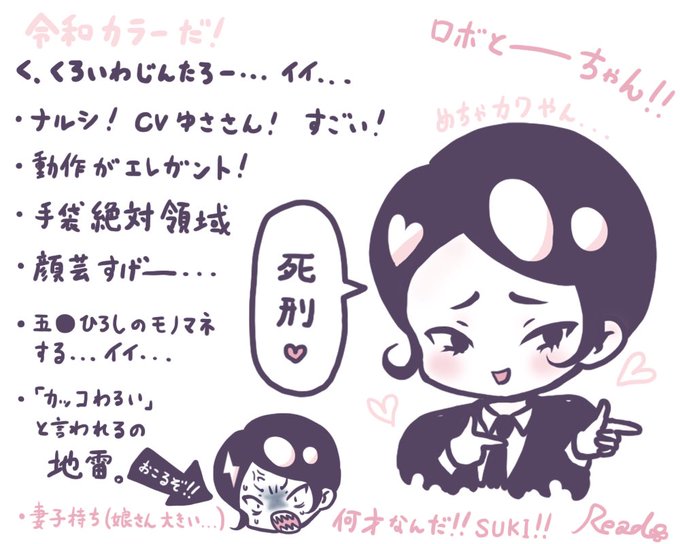 令和カラーだ!
く、くろいわじんたろー… イイ...
・ナルシ! CVゆささん! すごい!
・動作がエレガント!
・手袋絶対領域
・顔芸すげー…
・五●ひろしのモノマネ
する... イイ...
・「カッコわるい」
と言われるの
地雷。
おこるぞ!!
・妻子持ち(娘さん大きい...)
何才なんだ!! SUKI!!
ロボとーちゃん!!
めちゃカワやん...
死刑♥